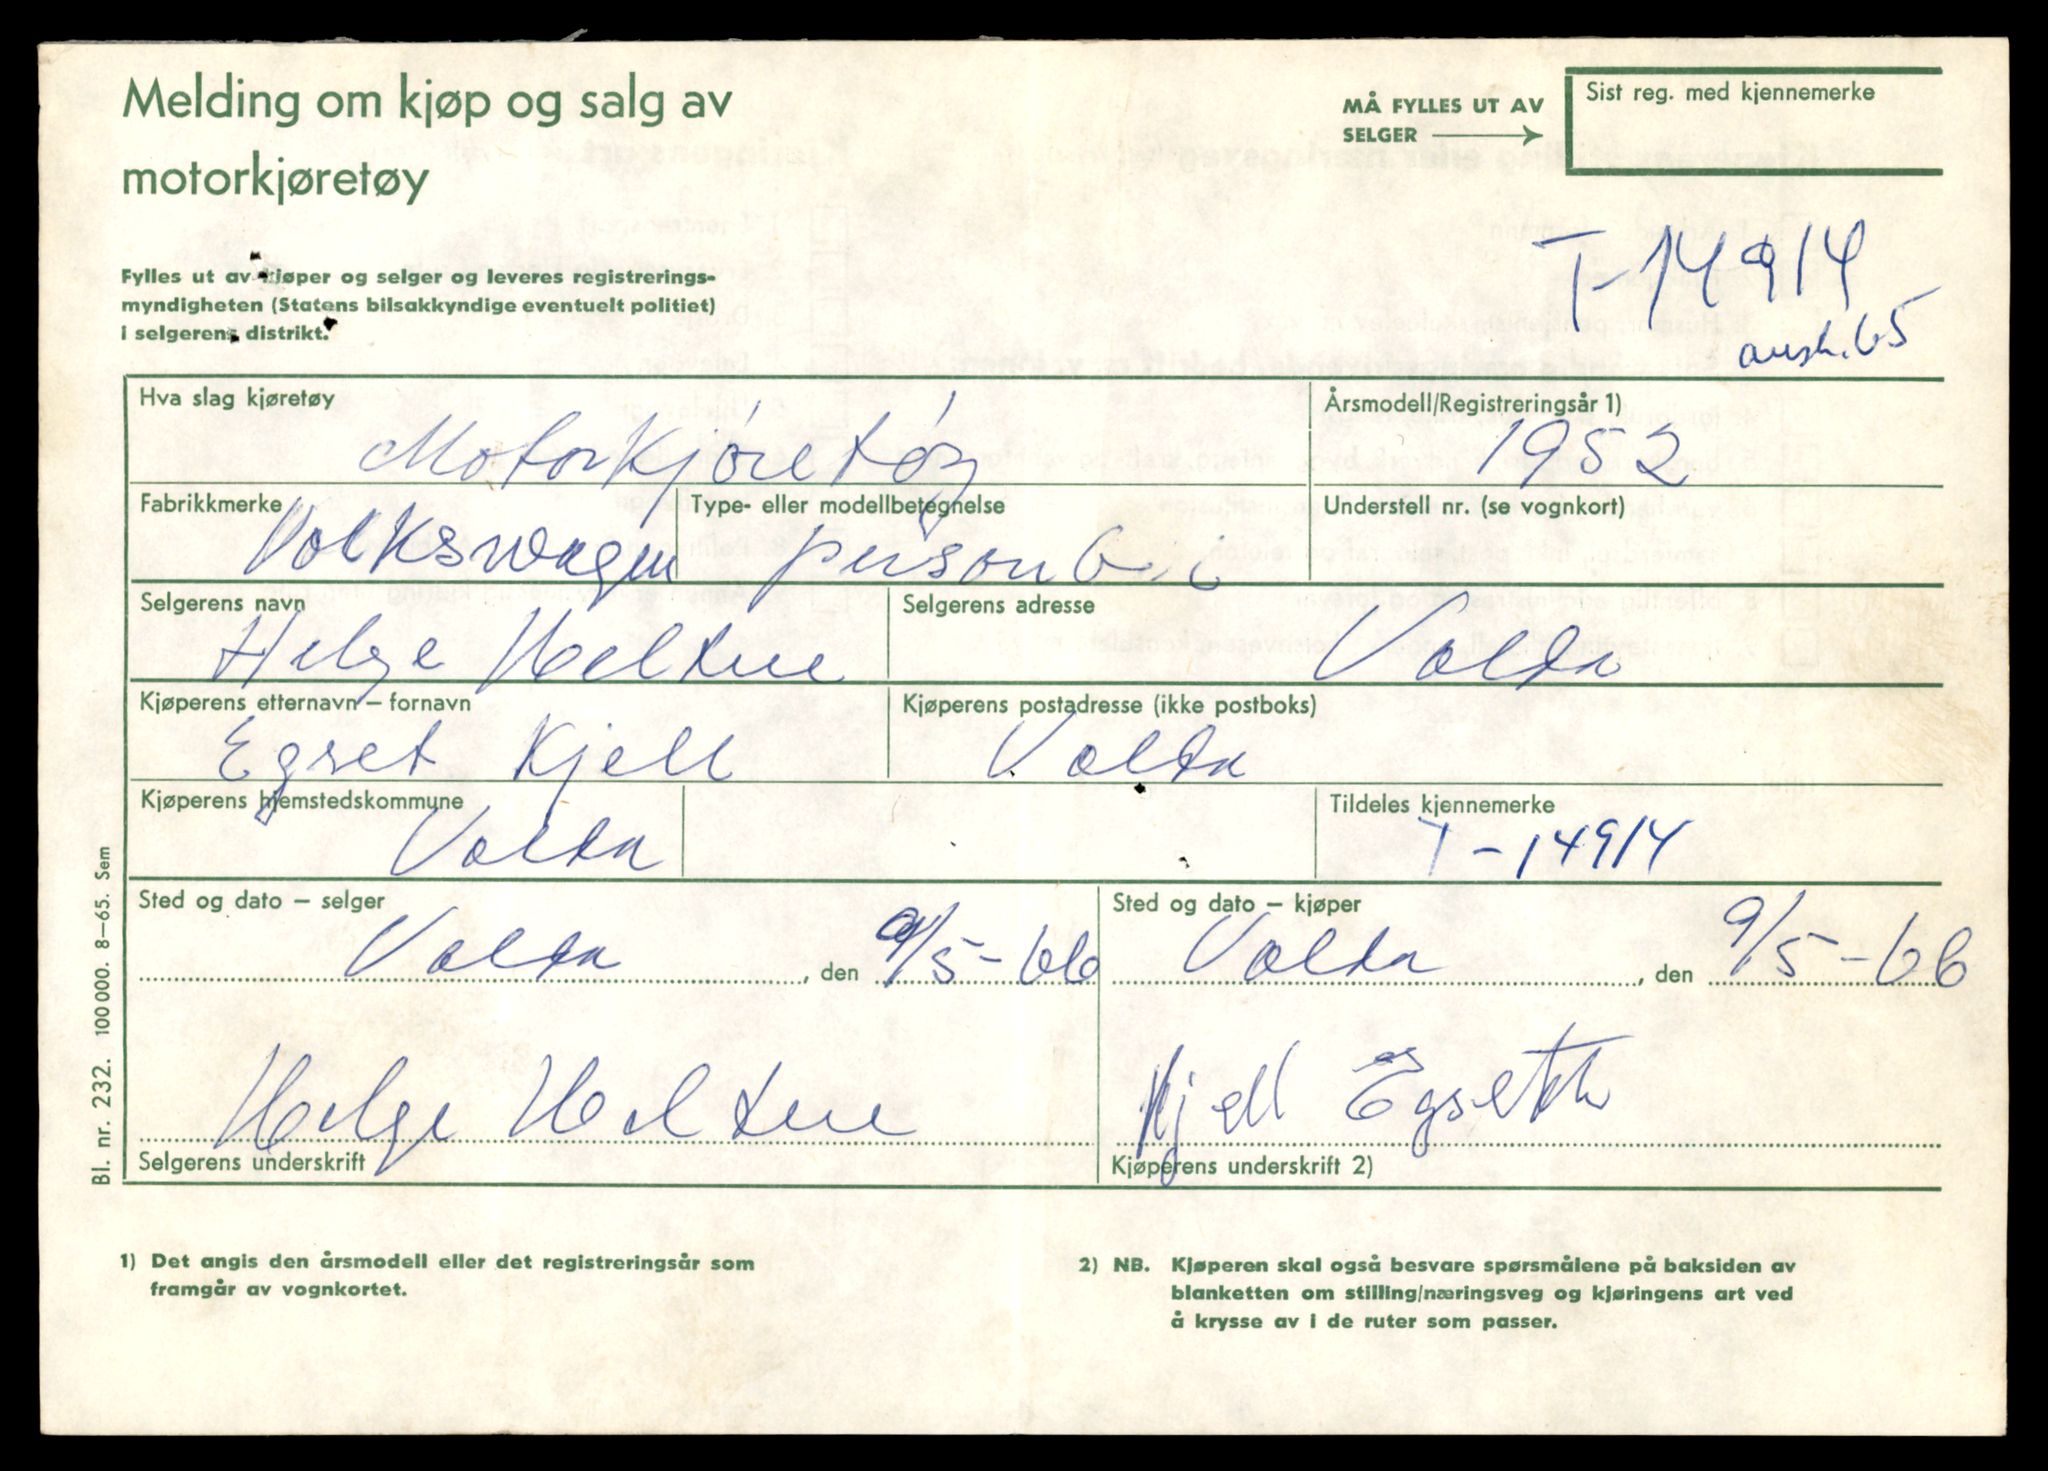 Melding om kjøp og salg av
motorkjøretøy
MÅ FYLLES UT AV
SELGER
Sist reg. med kjennemerke
T-14914
avsk. 65
Fylles ut av kjøper og selger og leveres registrerings-
myndigheten (Statens bilsakkyndige eventuelt politiet)
i selgerens distrikt.
Hva slag kjøretøy
Motorkjøretøy
Årsmodell/Registreringsår 1)
1952
Fabrikkmerke
Volkswagen
Type- eller modellbetegnelse
personb.i
Understell nr. (se vognkort)
Selgerens navn
Helge Heltne
Selgerens adresse
Volda
Kjøperens etternavn – fornavn
Egset Kjell
Kjøperens postadresse (ikke postboks)
Volda
Kjøperens hjemstedskommune
Volda
Tildeles kjennemerke
T-14914
Sted og dato – selger
Volda, den 9/5-66
Sted og dato – kjøper
Volda, den 9/5-66
Helge Heltne
Selgerens underskrift
Kjell Egseth
Kjøperens underskrift 2)
Bl. nr. 232. 100 000. 8–65. Sem
1) Det angis den årsmodell eller det registreringsår som
framgår av vognkortet.
2) NB. Kjøperen skal også besvare spørsmålene på baksiden av
blanketten om stilling/næringsveg og kjøringens art ved
å krysse av i de ruter som passer.